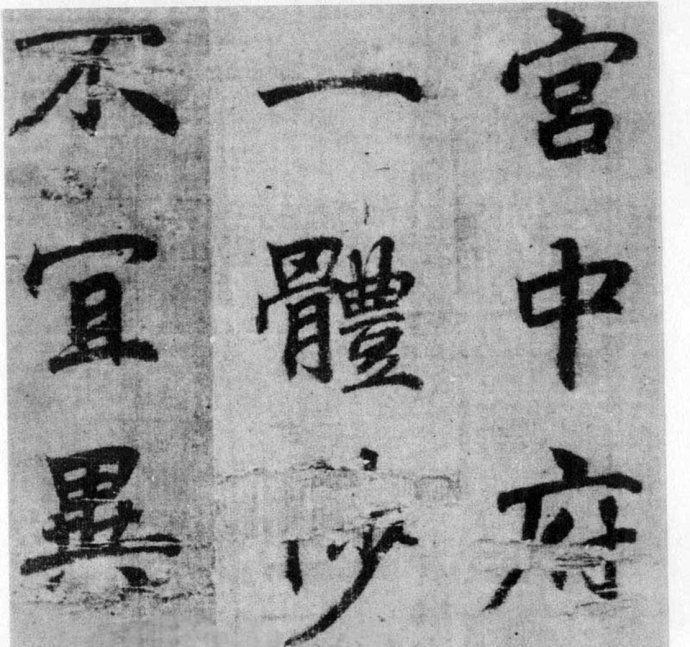 宮中府
一體陟
不宜異